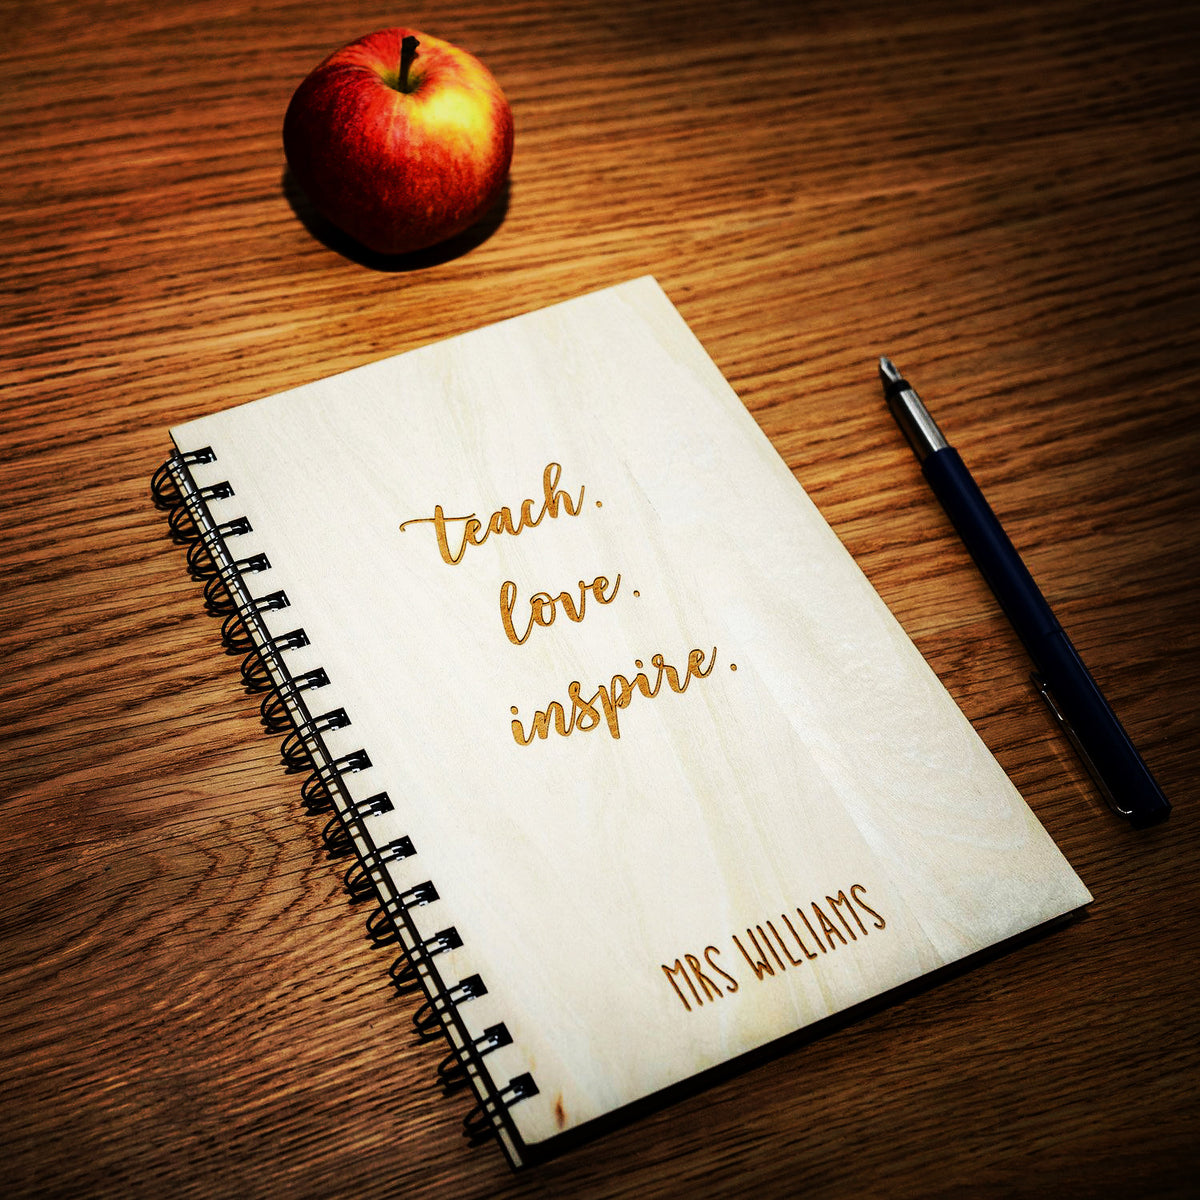 teach.
love.
inspire.
MRS WILLIAMS